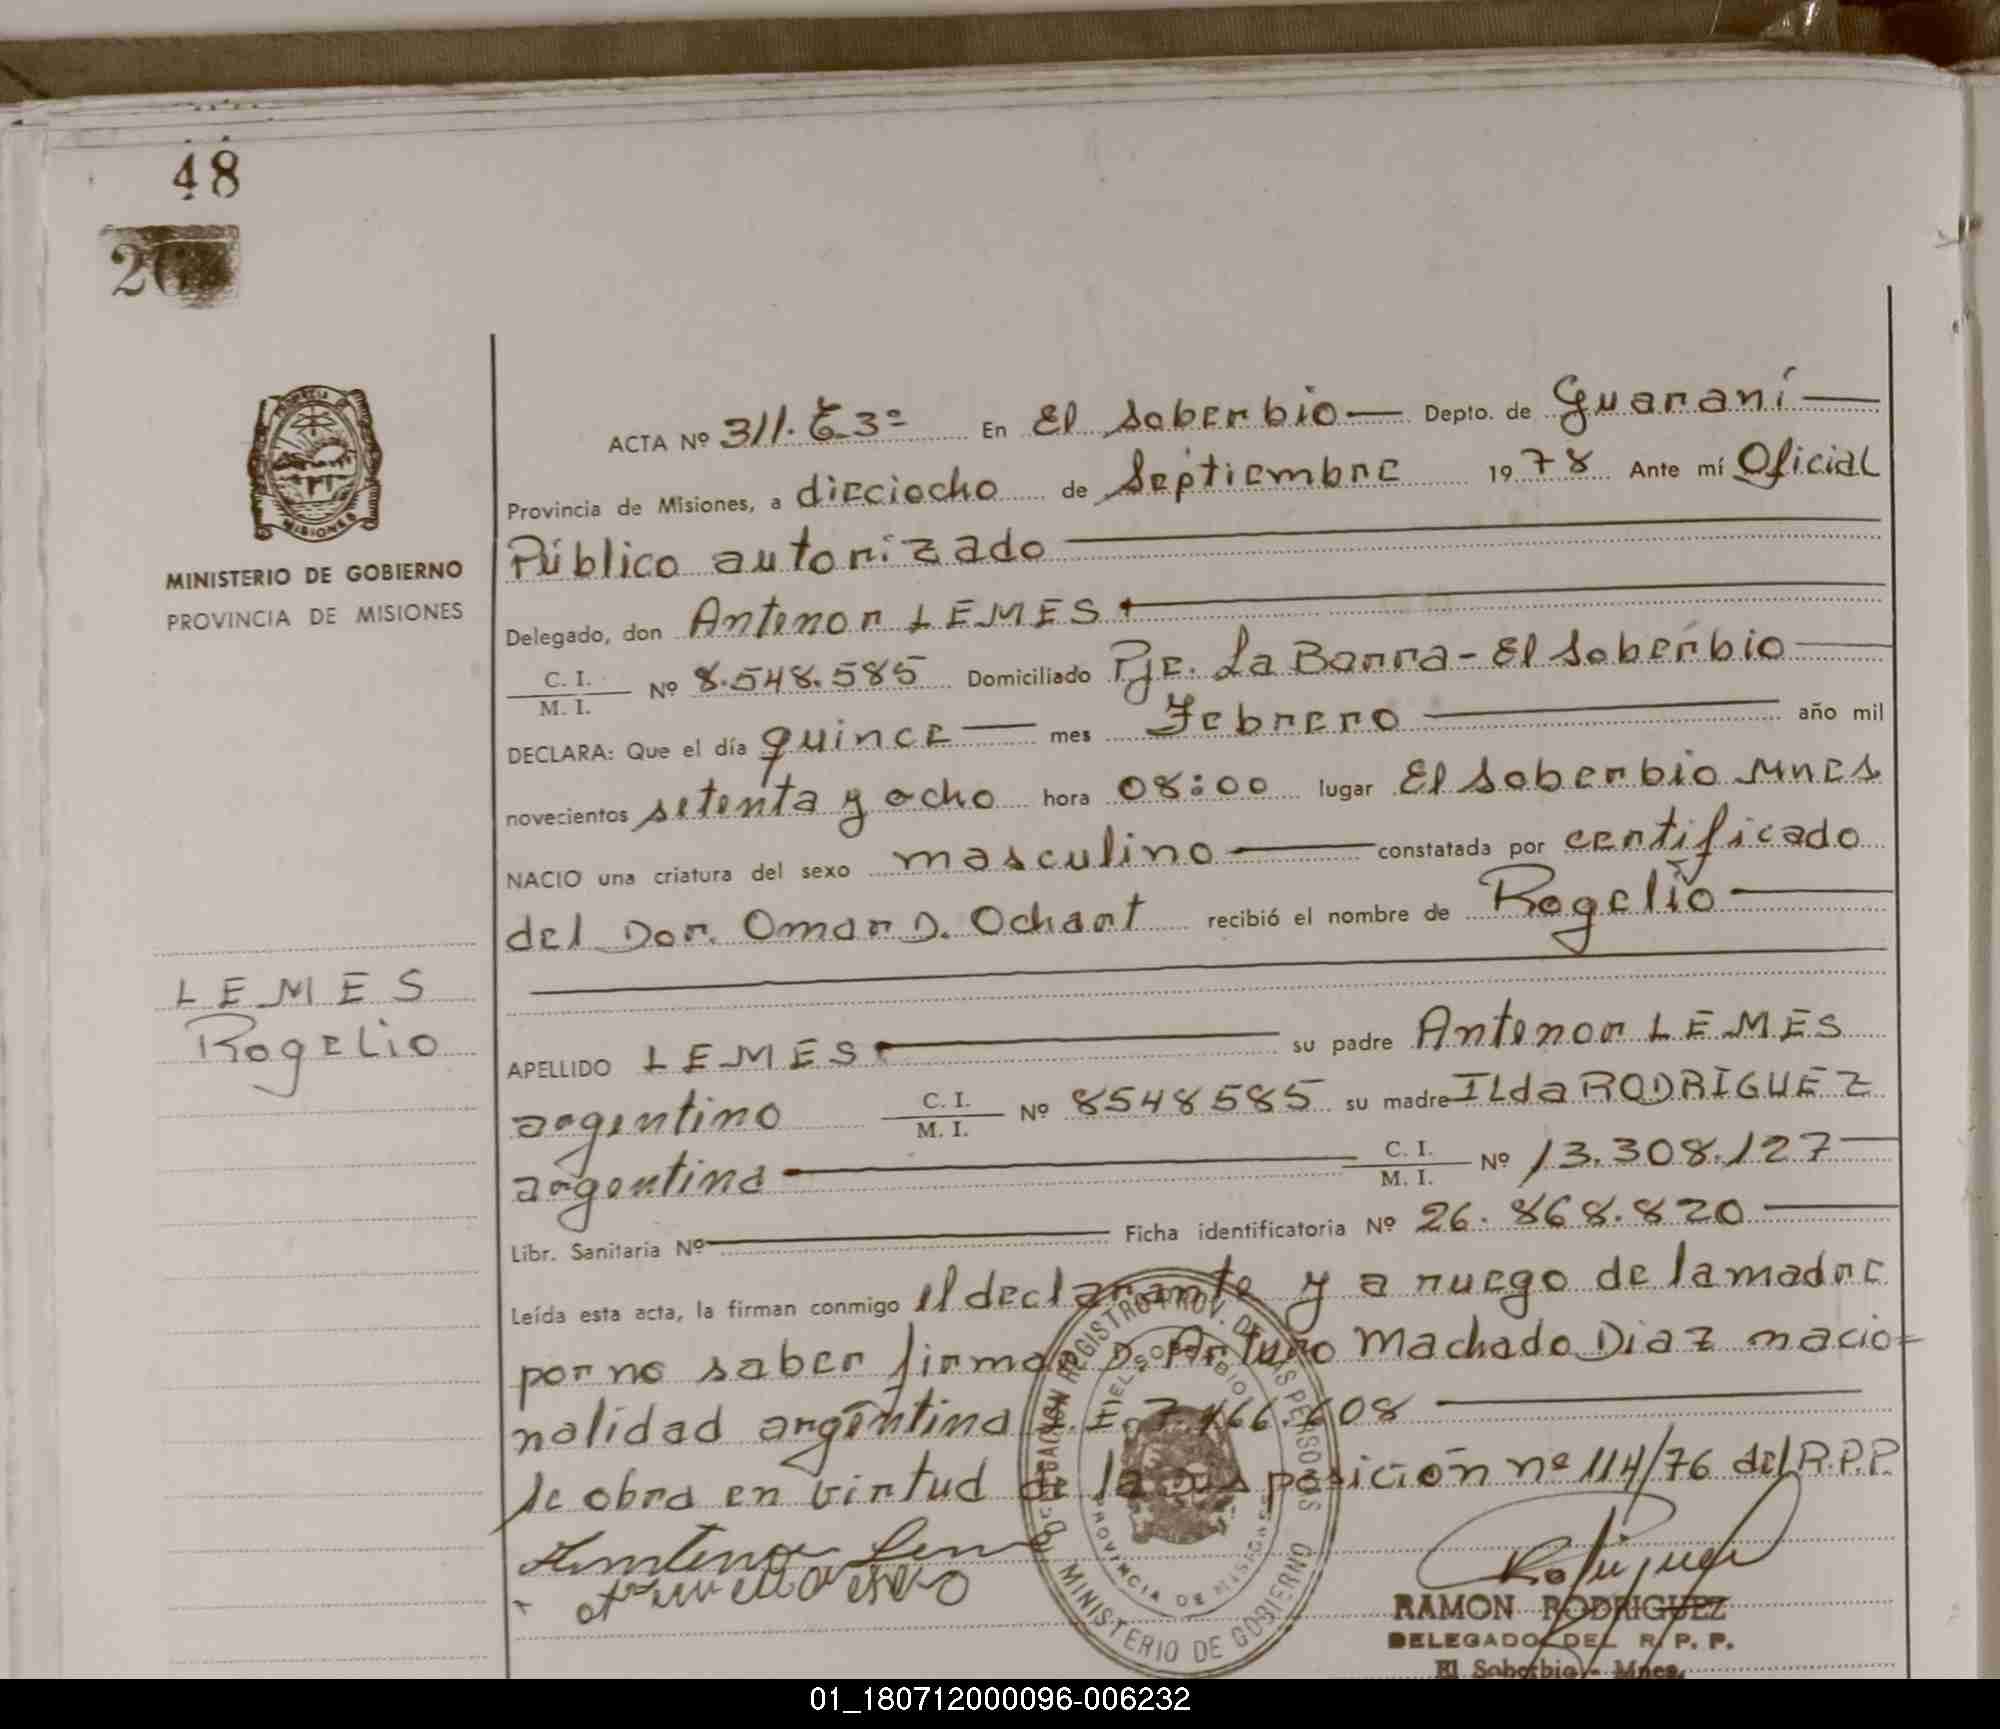 48
20
MINISTERIO DE GOBIERNO
PROVINCIA DE MISIONES
LEMES
Rogelio
ACTA Nº 311. T.3º En El Soberbio Depto. de Guaraní
Provincia de Misiones, a dieciocho de Septiembre 1978 Ante mí Oficial
Público autorizado
Delegado, don Antenor LEMES
C. I.
M. I. Nº 8.548.585 Domiciliado Pje. La Barra - El Soberbio
DECLARA: Que el día quince mes Febrero año mil
novecientos setenta y ocho hora 08:00 lugar El Soberbio Mnes
NACIO una criatura del sexo masculino constatada por certificado
del Dor. Omar D. Ochart recibió el nombre de Rogelio
APELLIDO LEMES su padre Antenor LEMES
argentino C. I.
M. I. Nº 8548585 su madre ILda RODRIGUEZ
argentina C. I.
M. I. Nº 13.308.127
Libr. Sanitaria Nº Ficha identificatoria Nº 26.868.820
Leída esta acta, la firman conmigo el declarante y a ruego de la madre
por no saber firmar D. Arturo Machado Diaz nacio=
nalidad argentina 7.466.608
se obra en virtud de la disposición nº 114/76 del R.P.P.
DELEGACION REGISTRO PROV. DE LAS PERSONAS
EL SOBERBIO
PROVINCIA DE MISIONES
MINISTERIO DE GOBIERNO
RAMON RODRIGUEZ
DELEGADO DEL R. P. P.
El Soberbio - Mnes.
01_180712000096-006232